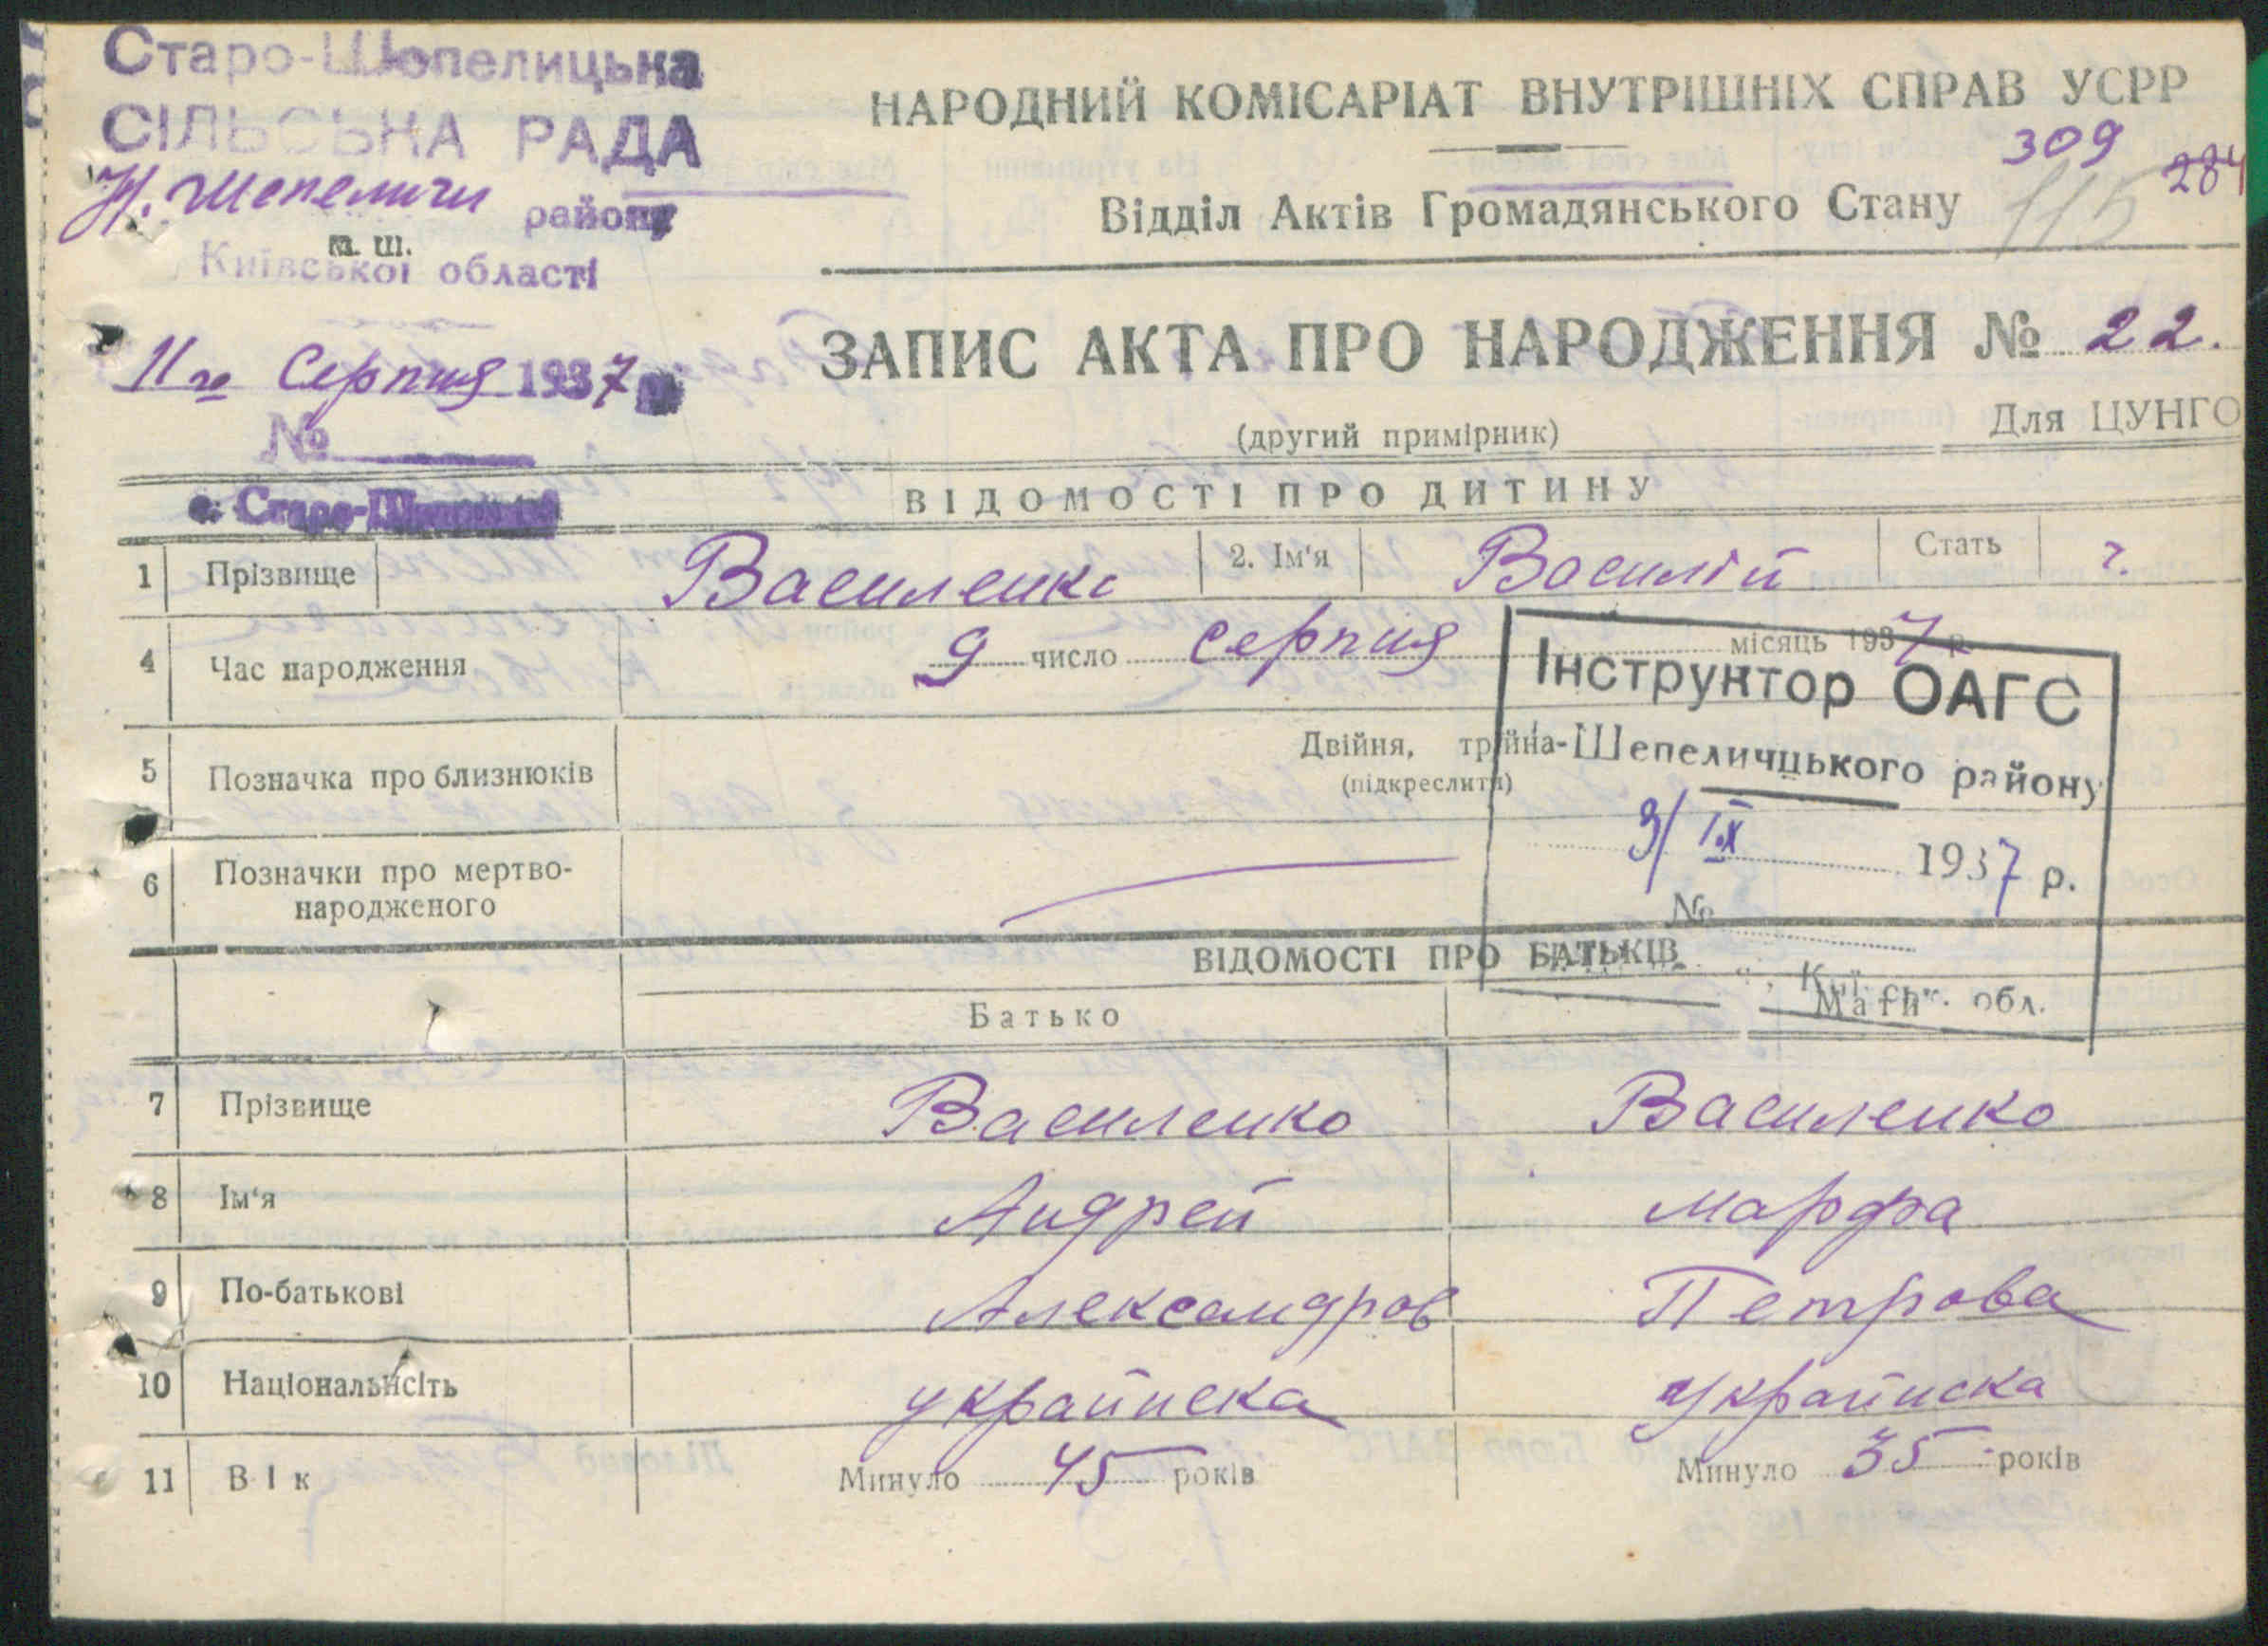 Старо-Шепелицька
СІЛЬСЬКА РАДА
Н. Шепеличи району
Київської області
11го Серпня 1937
№
с. Старо-
НАРОДНИЙ КОМІСАРІАТ ВНУТРІШНІХ СПРАВ УСРР
309
284
Відділ Актів Громадянського Стану 115
ЗАПИС АКТА ПРО НАРОДЖЕННЯ № 22.
(другий примірник)
Для ЦУНГО
ВІДОМОСТІ ПРО ДИТИНУ
1 Прізвище Василенко 2. Ім'я Василій Стать ч.
4 Час народження 9 число серпня місяць 1937 р.
Інструктор ОАГС
5 Позначка про близнюків Двійня, трійня
(підкреслити)
-Шепеличцького району
3/IX 1937 р.
№
Київськ. обл.
6 Позначки про мертво-
народженого
ВІДОМОСТІ ПРО БАТЬКІВ
Батько Мати
7 Прізвище Василенко Василенко
8 Ім'я Андрей Марфа
9 По-батькові Александров Петрова
10 Національність украйнска Украйнска
11 Вік Минуло 45 років Минуло 35 років